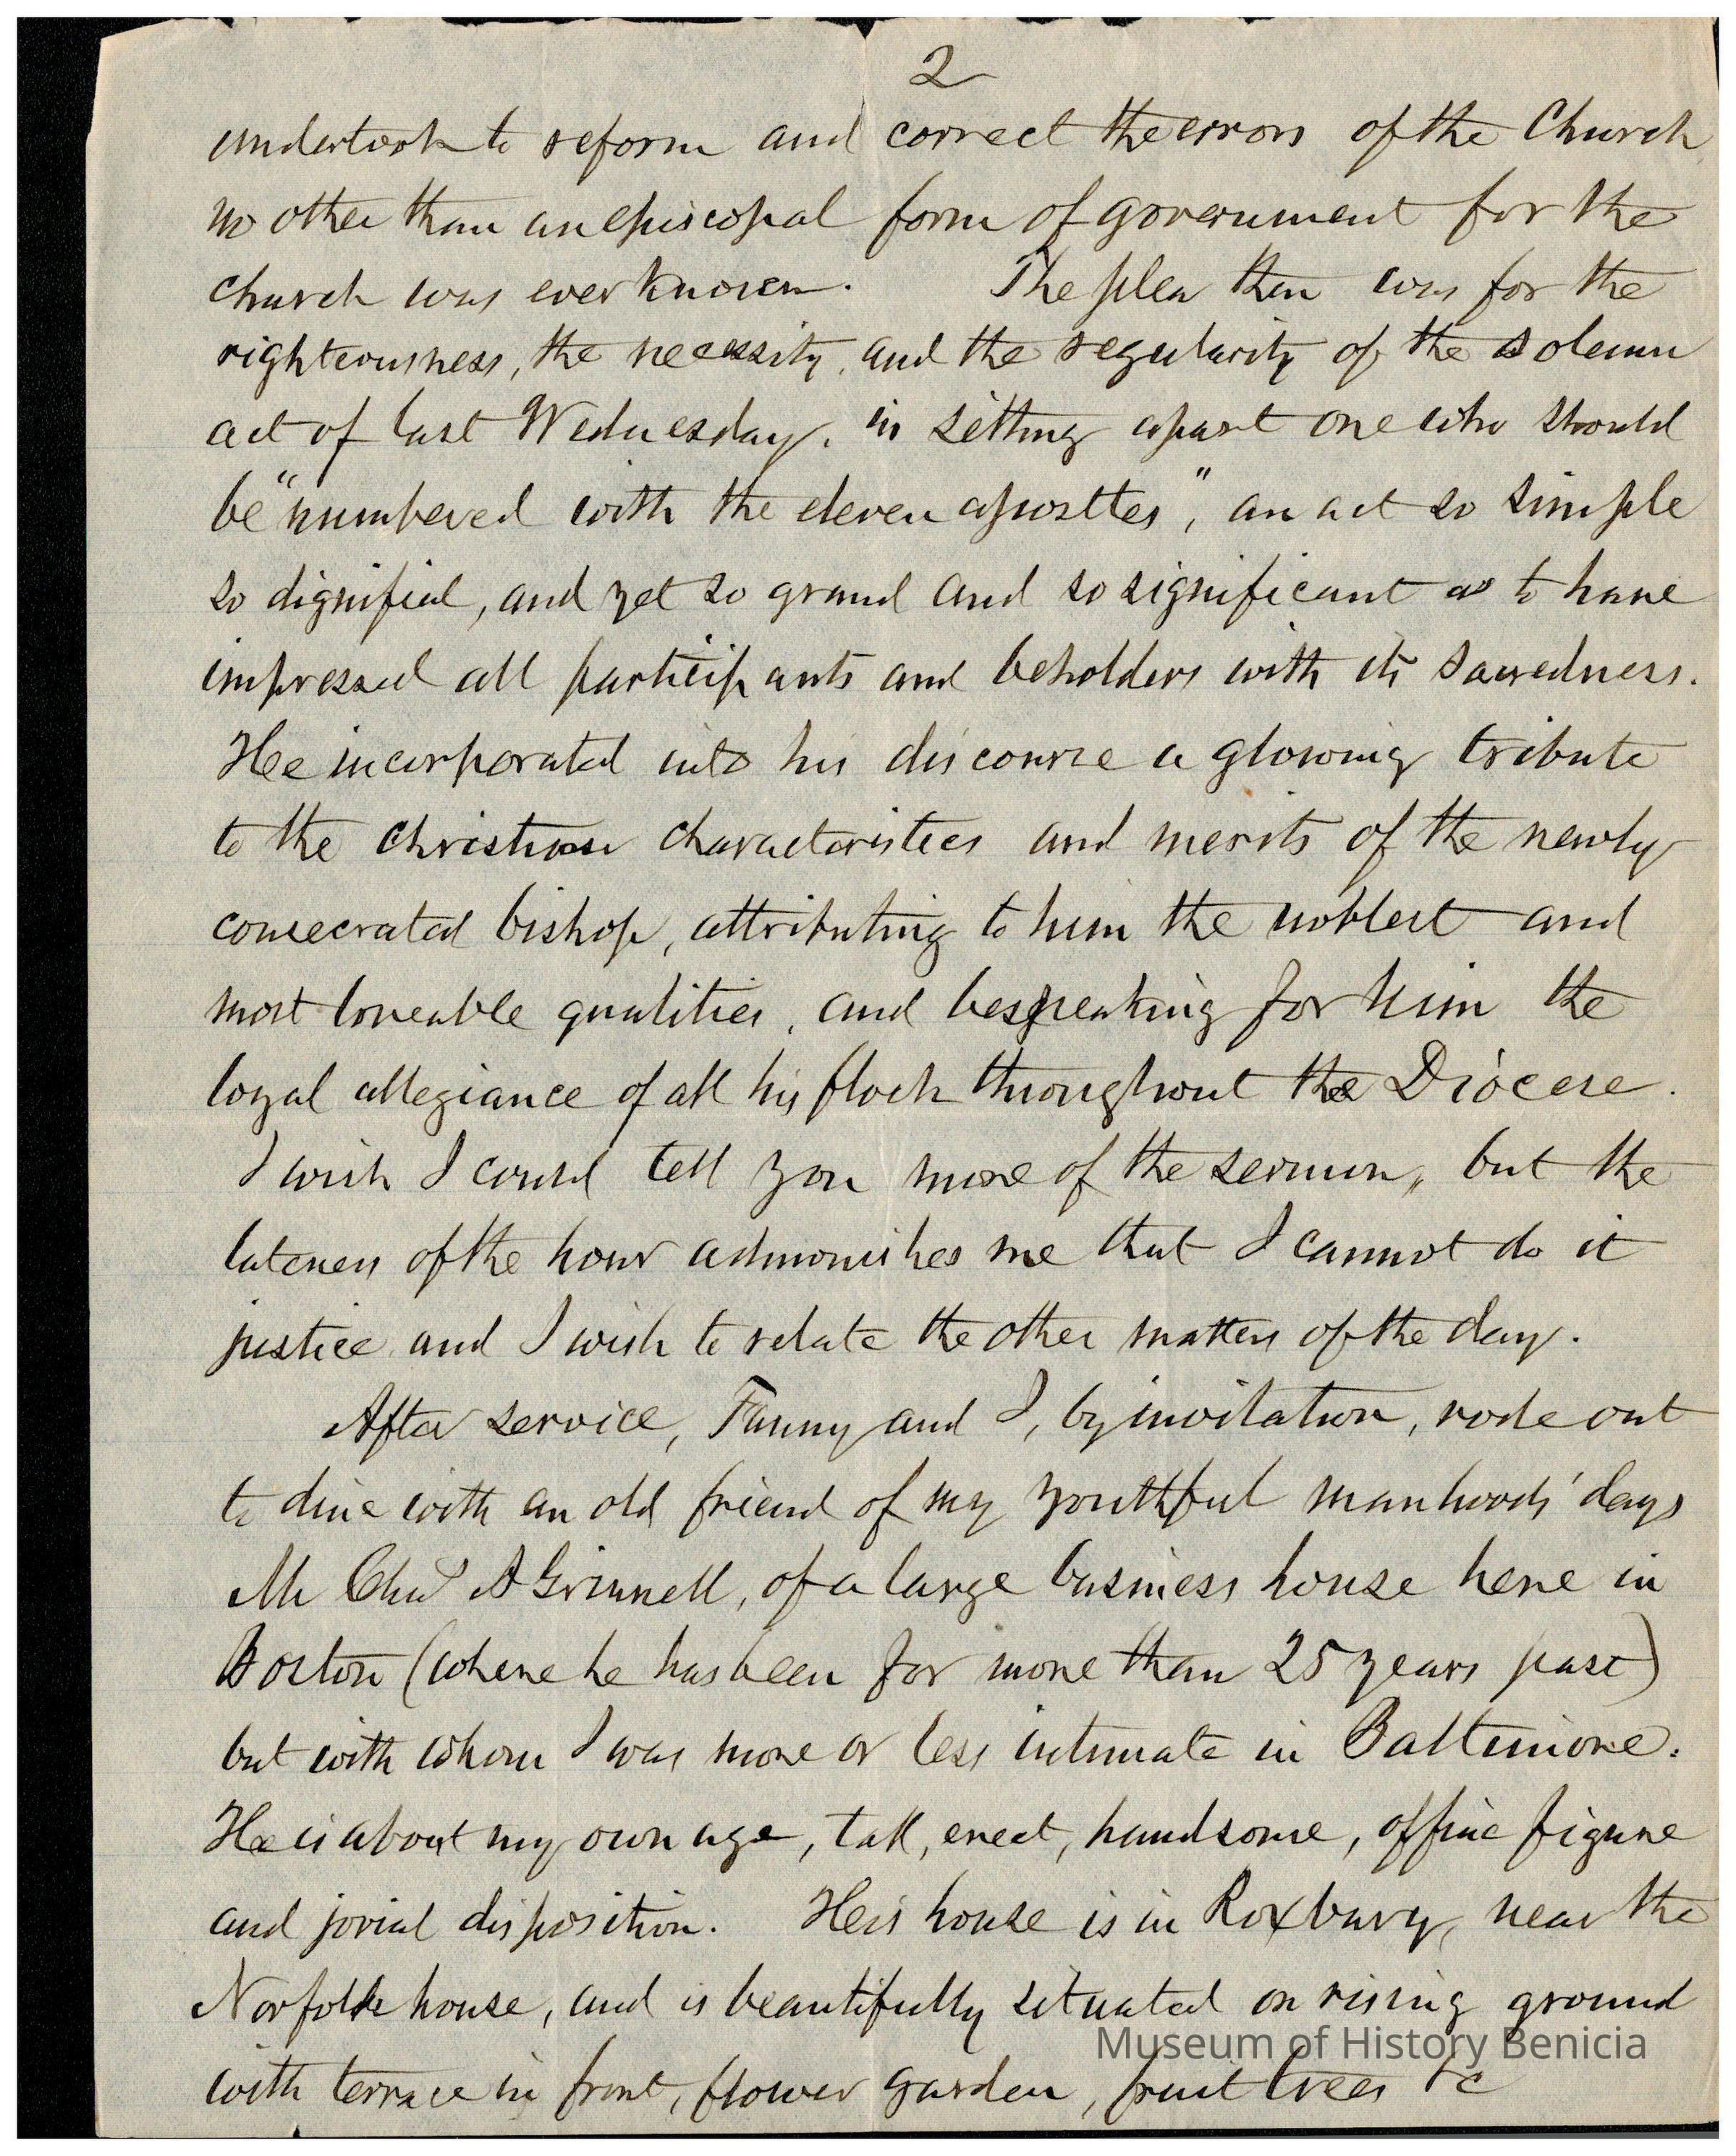 2
undertook to reform and correct the errors of the Church
no other than an episcopal form of government for the
church was ever known. The plea then was for the
righteousness, the necessity, and the regularity of the solemn
act of last Wednesday, in setting apart one who should
be "numbered with the eleven apostles", an act so simple
so dignified, and yet so grand and so significant as to have
impressed all participants and beholders with its sacredness.
He incorporated into his discourse a glowing tribute
to the christian characteristics and merits of the newly
consecrated bishop, attributing to him the noblest and
most loveable qualities, and bespeaking for him the
loyal allegiance of all his flock throughout the Diocese.
I wish I could tell you more of the sermon, but the
lateness of the hour admonishes me that I cannot do it
justice and I wish to relate the other matters of the day.
After service, Fanny and I, by invitation, rode out
to dine with an old friend of my youthful manhoods' days
Mr Chas A Grinnell, of a large business house here in
Boston (where he has been for more than 25 years past)
but with whom I was more or less intimate in Baltimore.
He is about my own age, tall, erect, handsome, of fine figure
and jovial disposition. His house is in Roxbury, near the
Norfolk house, and is beautifully situated on rising ground
with terrace in front, flower garden, fruit trees &c
Museum of History Benicia